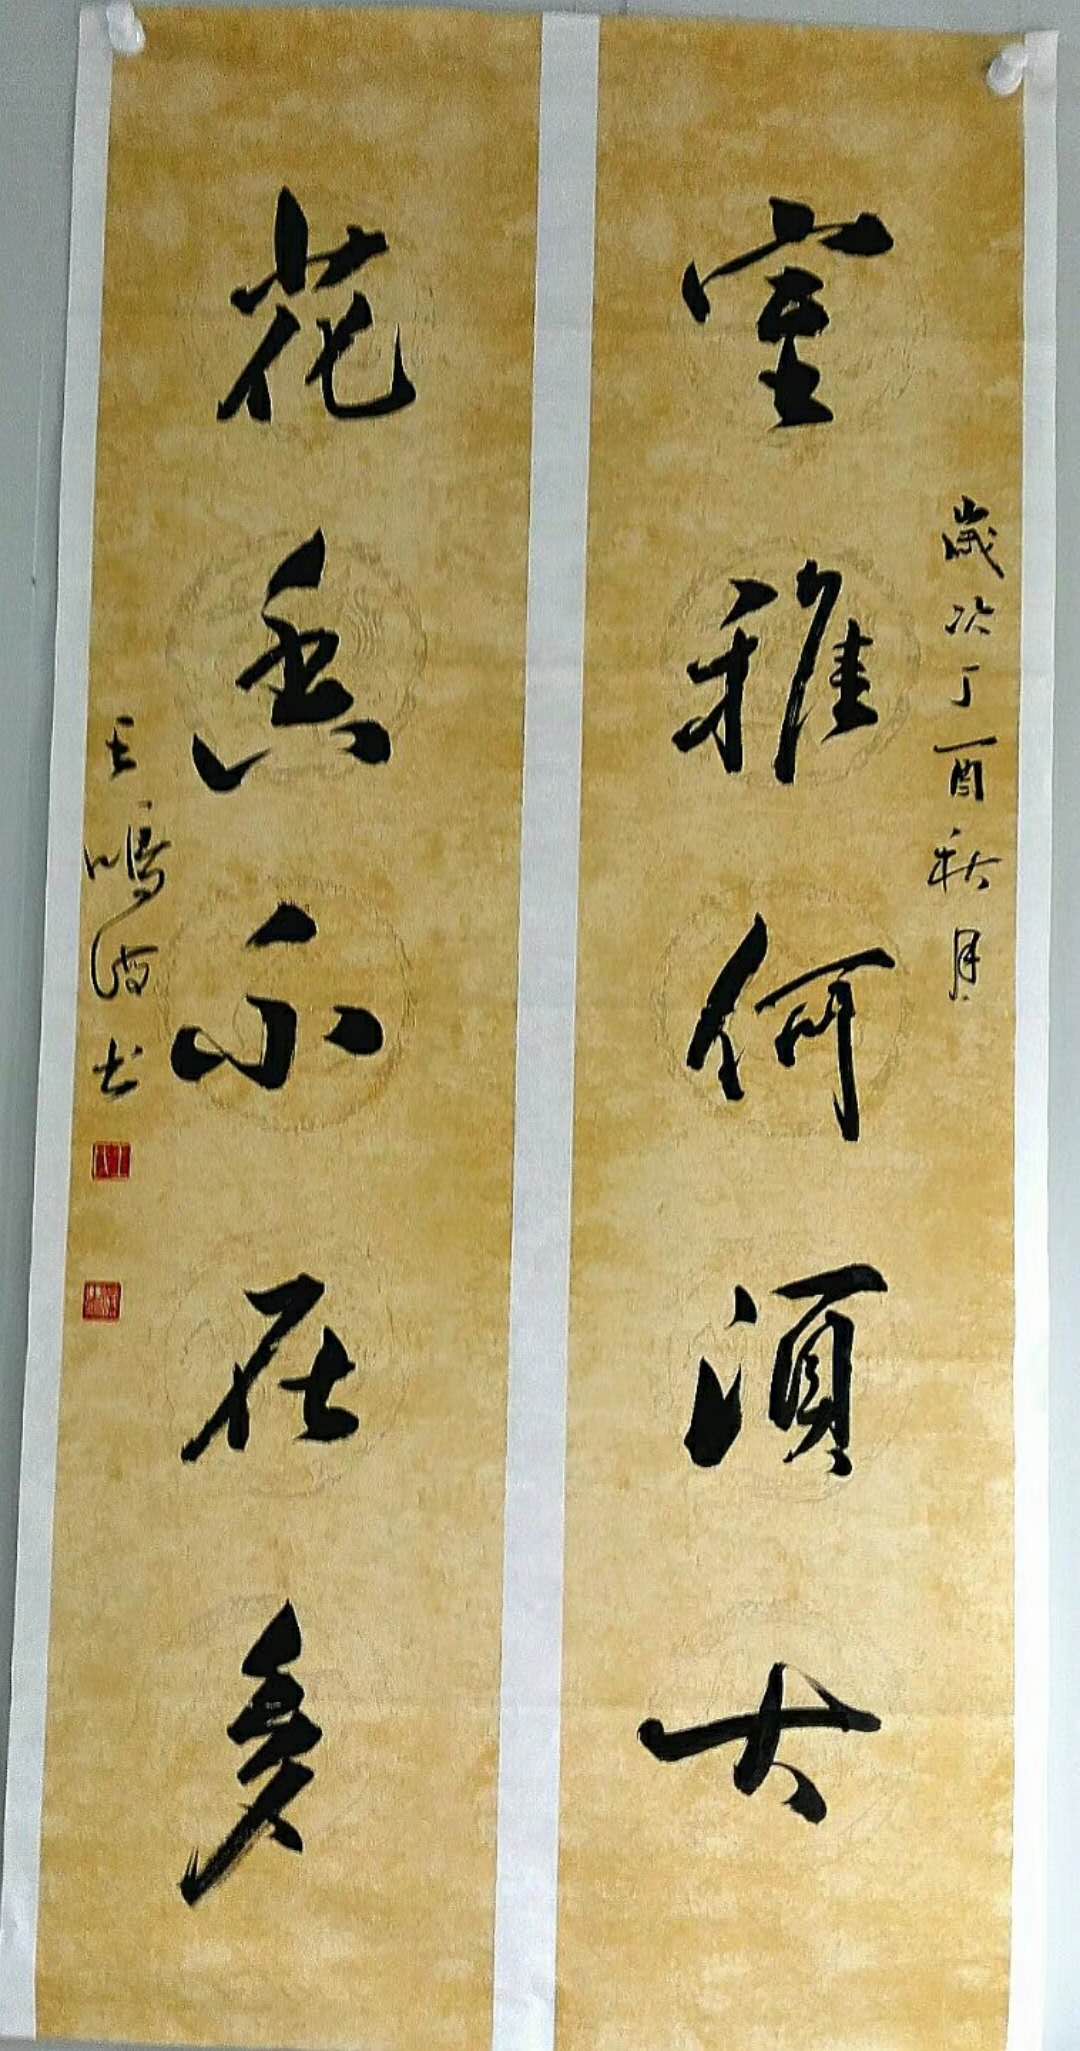 歲次丁酉秋月
室雅何須大
花香不在多
王鳴波书